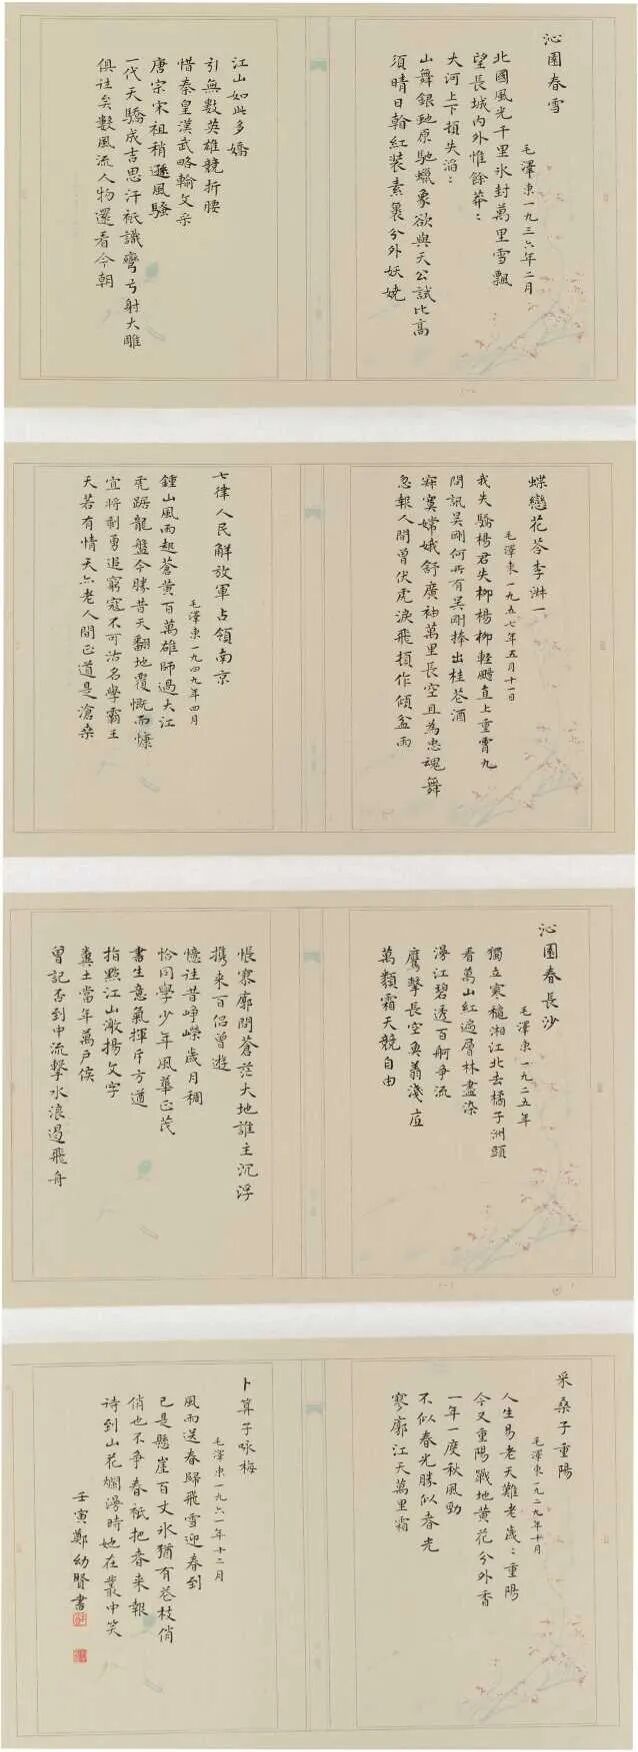 沁園春雪
毛澤東一九三六年二月
北國風光千里冰封萬里雪飄
望長城内外惟餘莽：
大河上下頓失滔：
山舞銀蛇原馳蠟象欲與天公試比高
須晴日看紅装素裹分外妖嬈
江山如此多嬌
引無數英雄競折腰
惜秦皇漢武略輸文采
唐宗宋祖稍遜風騷
一代天驕成吉思汗祇識彎弓射大雕
俱往矣數風流人物還看今朝
蝶戀花答李淑一
毛澤東一九五七年五月十一日
我失驕楊君失柳楊柳輕颺直上重霄九
問訊吴剛何所有吴剛捧出桂花酒
寂寞嫦娥舒廣袖萬里長空且為忠魂舞
忽報人間曾伏虎淚飛頓作傾盆雨
七律人民解放軍占領南京
毛澤東一九四九年四月
鍾山風雨起蒼黄百萬雄師過大江
虎踞龍盤今勝昔天翻地覆慨而慷
宜將剩勇追窮寇不可沽名學霸王
天若有情天亦老人間正道是滄桑
沁園春長沙
毛澤東一九二五年
獨立寒秋湘江北去橘子洲頭
看萬山紅遍層林盡染
漫江碧透百舸争流
鷹擊長空魚翔淺底
萬類霜天競自由
悵寥廓問蒼茫大地誰主沉浮
攜来百侣曾遊
憶往昔崢嶸歲月稠
恰同學少年風華正茂
書生意氣揮斥方遒
指點江山激揚文字
糞土當年萬户侯
曾記否到中流擊水浪遏飛舟
采桑子重陽
毛澤東一九二九年十月
人生易老天難老歲：重陽
今又重陽戰地黄花分外香
一年一度秋風勁
不似春光勝似春光
寥廓江天萬里霜
卜算子咏梅
毛澤東一九六一年十二月
風雨送春歸飛雪迎春到
已是懸崖百丈冰猶有花枝俏
俏也不争春祇把春来報
待到山花爛漫時她在叢中笑
壬寅鄭幼賢書